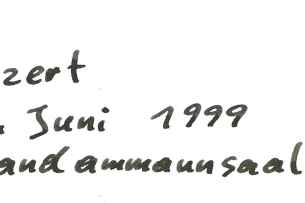 zert
. Juni 1999
andammannsaal